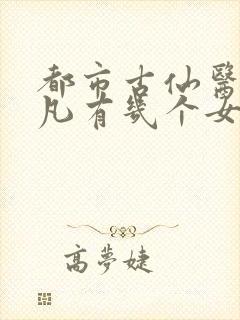 都市古仙醫
凡有幾个女
高夢婕